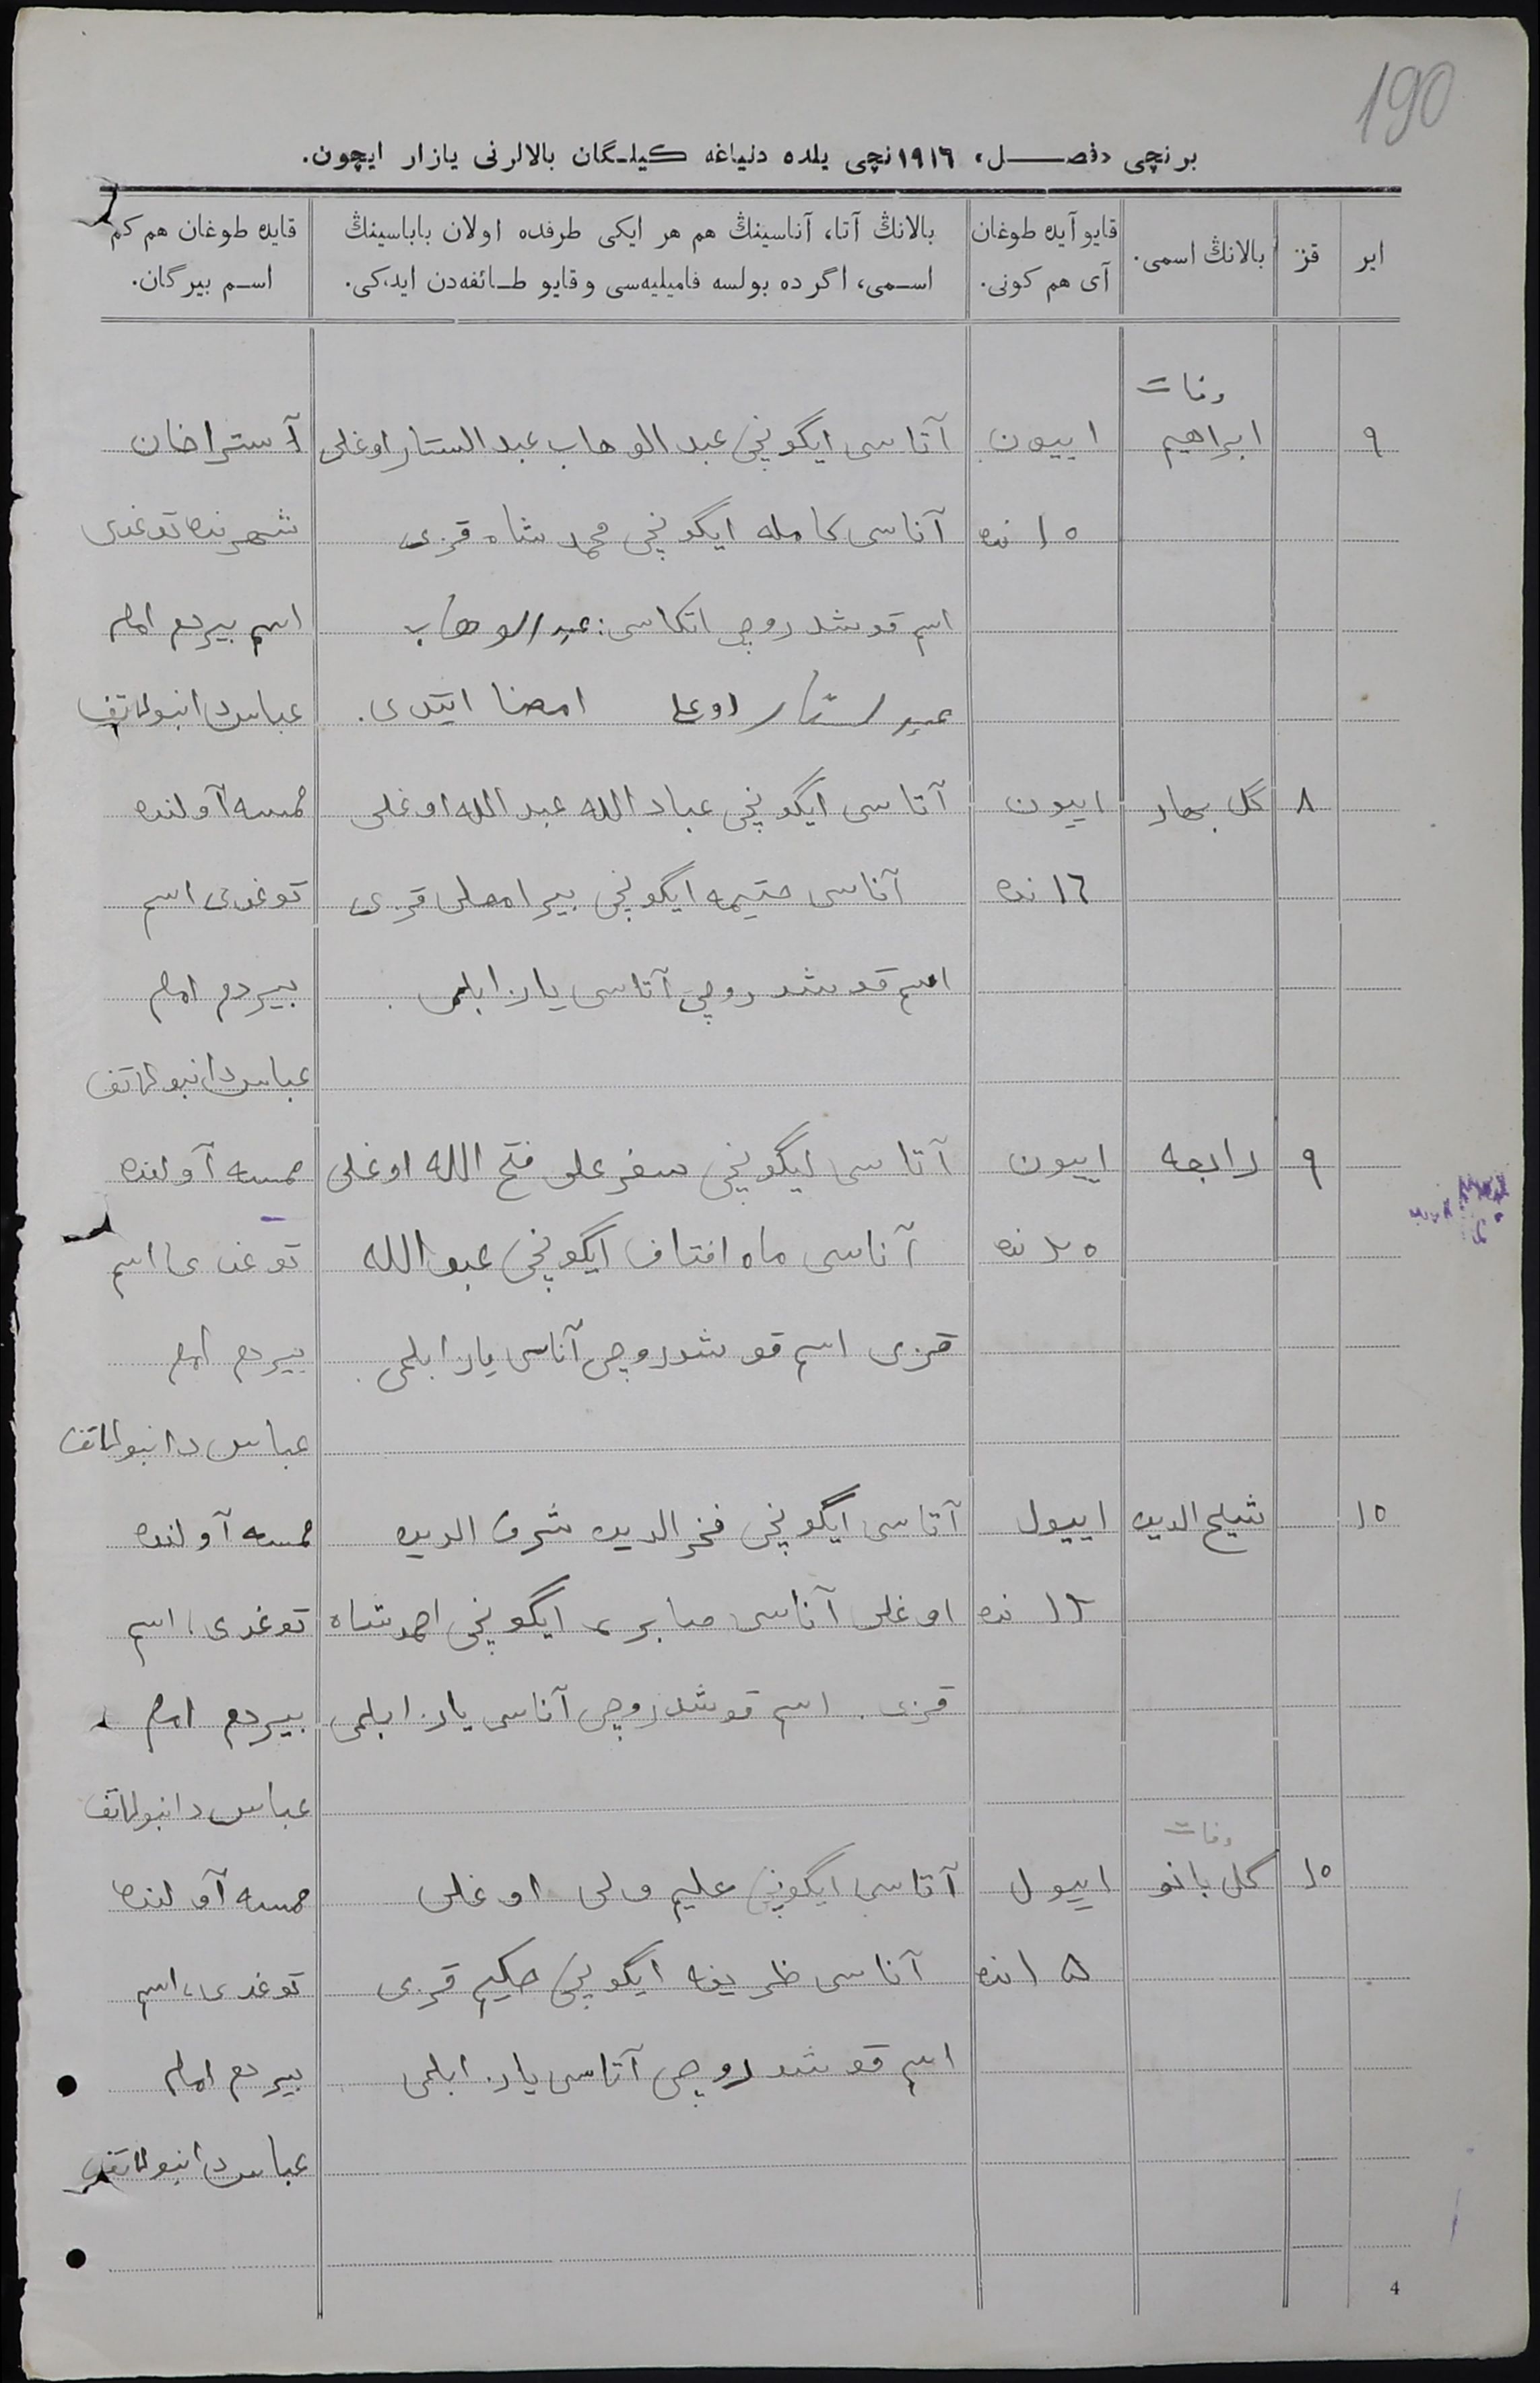 190
برنچی «فصل» ١٩١٦نچی یلده دنیاغه کیلگان بالالرنی یازار ایچون.
ایر
قز
بالانڭ اسمی.
قایو آیده طوغان
آی هم کونی.
بالانڭ آتا، آناسینڭ هم هر ایکی طرفده اولان باباسینڭ
اسمی، اگرده بولسه فامیلیه‌سی و قایو طائفه‌دن ایدکی.
قایده طوغان هم کم
اسم بیرگان.
وفات
٩ ابراهیم اییون آتاسی ایگونچی عبد الوهاب عبد الستار اوغلی آستراخان
١٥ نده آناسی کامله ایگونچی محمد شاه قزی شهرنده توغدی
اسم قوشدروچی اتکاسی: عبد الوهاب اسم بیردم امام
عبد الستار اوغلی امضا ایتدی. عباس دانبولاتف
٨ گل بهار اییون آتاسی ایگونچی عباد الله عبد الله اوغلی خمسه آولنده
١٦ نده آناسی حتیمه ایگونچی بیرامعلی قزی توغدی اسم
اسم قوشدروچی آتاسی یازا بلمی. بیردم امام
عباس دانبولاتف
٩ رابعه اییون آتاسی ایگونچی سفر علی فتح الله اوغلی خمسه آولنده
٢٥ نده آناسی ماه افتاف ایگونچی عبد الله توغدی اسم
قزی اسم قوشدروچی آتاسی یازا بلمی. بیردم امام
عباس دانبولاتف
١٥ شیلح الدین اییول آتاسی ایگونچی فخر الدین شرف الدین خمسه آولنده
١٢ نده اوغلی آناسی صابره ایگونچی احمد شاه توغدی، اسم
قزی. اسم قوشدروچی آتاسی یازا بلمی بیردم امام
عباس دانبولاتف
وفات
١٥ گل بانو اییول آتاسی ایگونچی علیم ولی اوغلی خمسه آولنده
١٥ نده آناسی ظریفه ایگونچی حکیم قزی توغدی، اسم
اسم قوشدروچی آتاسی یازا بلمی بیردم امام
عباس دانبولاتف
4